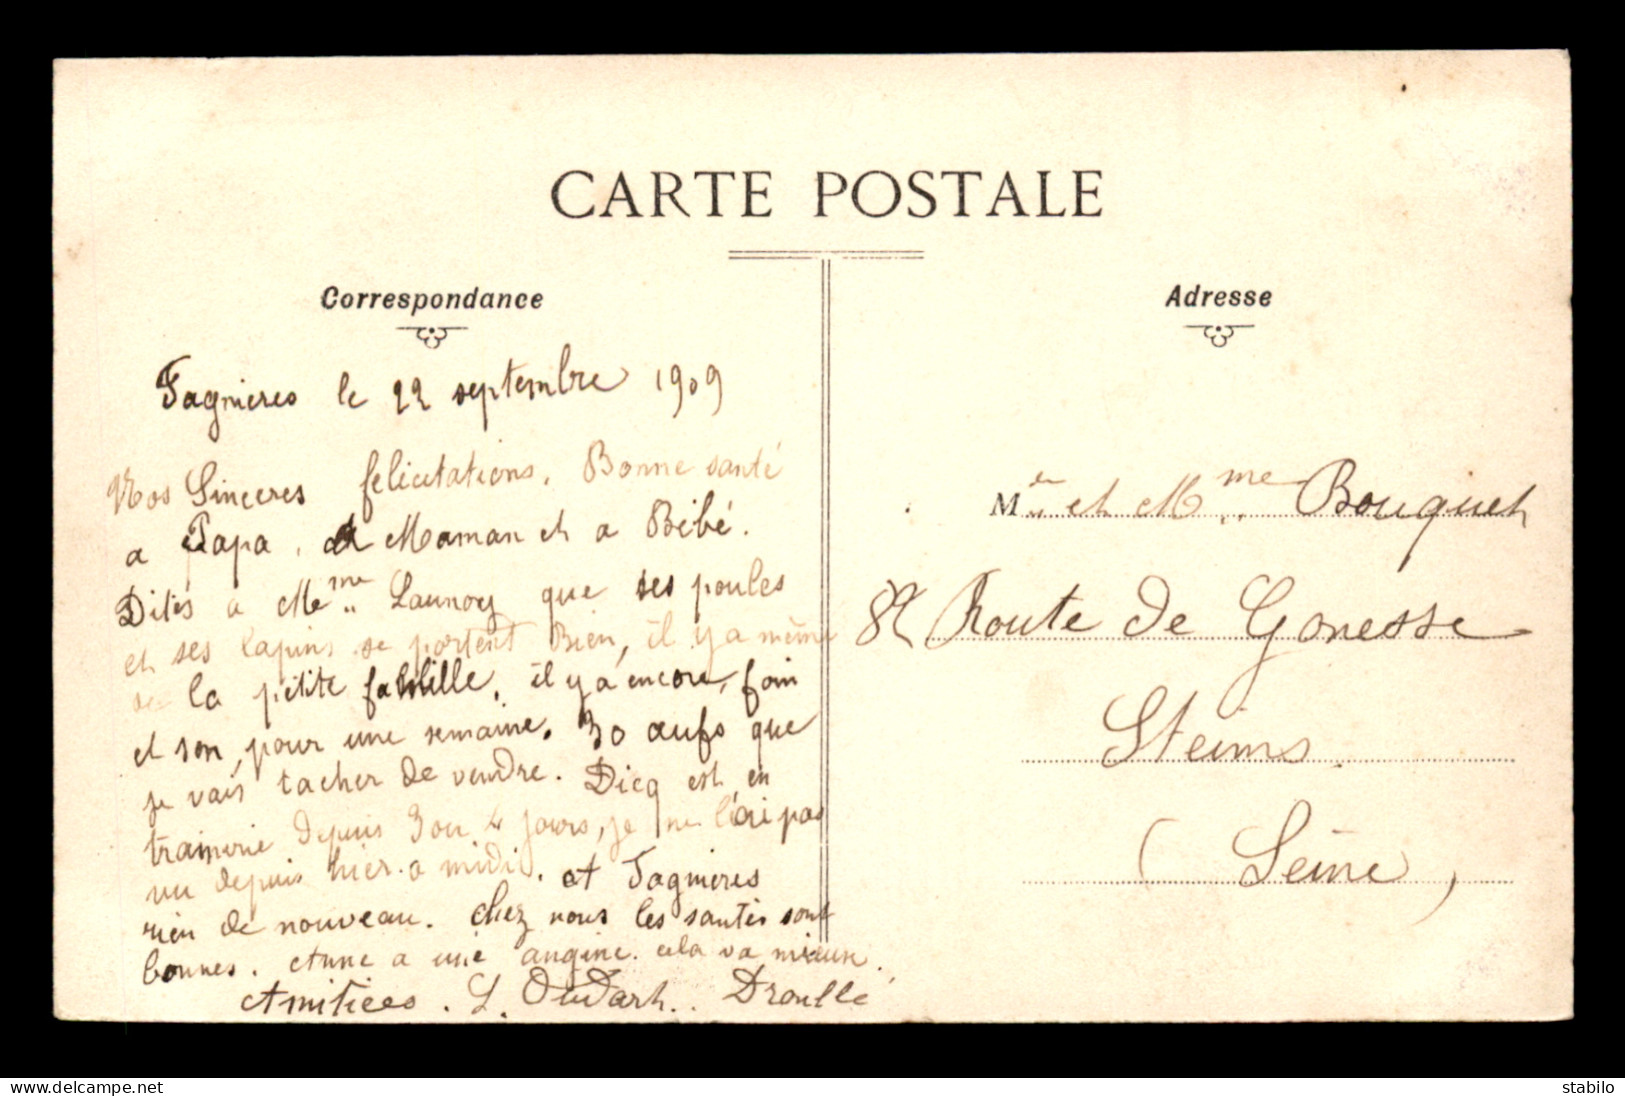 CARTE POSTALE
Correspondance
Adresse
Fagnieres le 22 septembre 1909
Nos Sinceres felicitations, Bonne santé
a Papa, a Maman et a Bébé.
Dites a Mme Launoy que ses poules
et ses lapins se portent Bien, il y a même
de la petite famille. il y a encore, foin
et son, pour une semaine. 30 œufs que
je vais tacher de vendre. Dicq est en
trainerie depuis 3 ou 4 jours, je ne l'ai pas
vu depuis hier a midi. et Fagnieres
rien de nouveau. chez nous les santés sont
bonnes. Anne a une angine. cela va mieux.
Amitiees. L. Oudart. Droullé
Mr et Mme Bouquet
82 Route de Gonesse
Steims
(Seine)
delcampe.net
stabilo